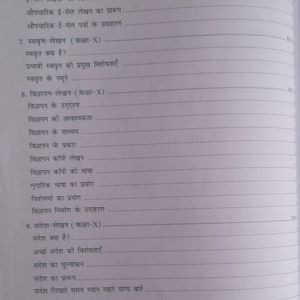 औपचारिक ई-मेल लेखन का प्रारूप
औपचारिक ई-मेल पत्रों के उदाहरण
7. स्ववृत्त-लेखन (कक्षा-X)
स्ववृत्त क्या है?
प्रभावी स्ववृत्त की प्रमुख विशेषताएँ
स्ववृत्त के नमूने
8. विज्ञापन-लेखन (कक्षा-X)
विज्ञापन के उद्देश्य
विज्ञापन की आवश्यकता
विज्ञापन के माध्यम
विज्ञापन के प्रकार
विज्ञापन कॉपी लेखन
विज्ञापन कॉपी की भाषा
शृंगारिक भाषा का प्रयोग
विशेषणों का प्रयोग
विज्ञापन निर्माण के उदाहरण
9. संदेश-लेखन (कक्षा-X)
संदेश क्या है?
अच्छे संदेश की विशेषताएँ
संदेश का मूल्यांकन
संदेश का प्रारूप
संदेश लिखते समय ध्यान रखने योग्य बातें